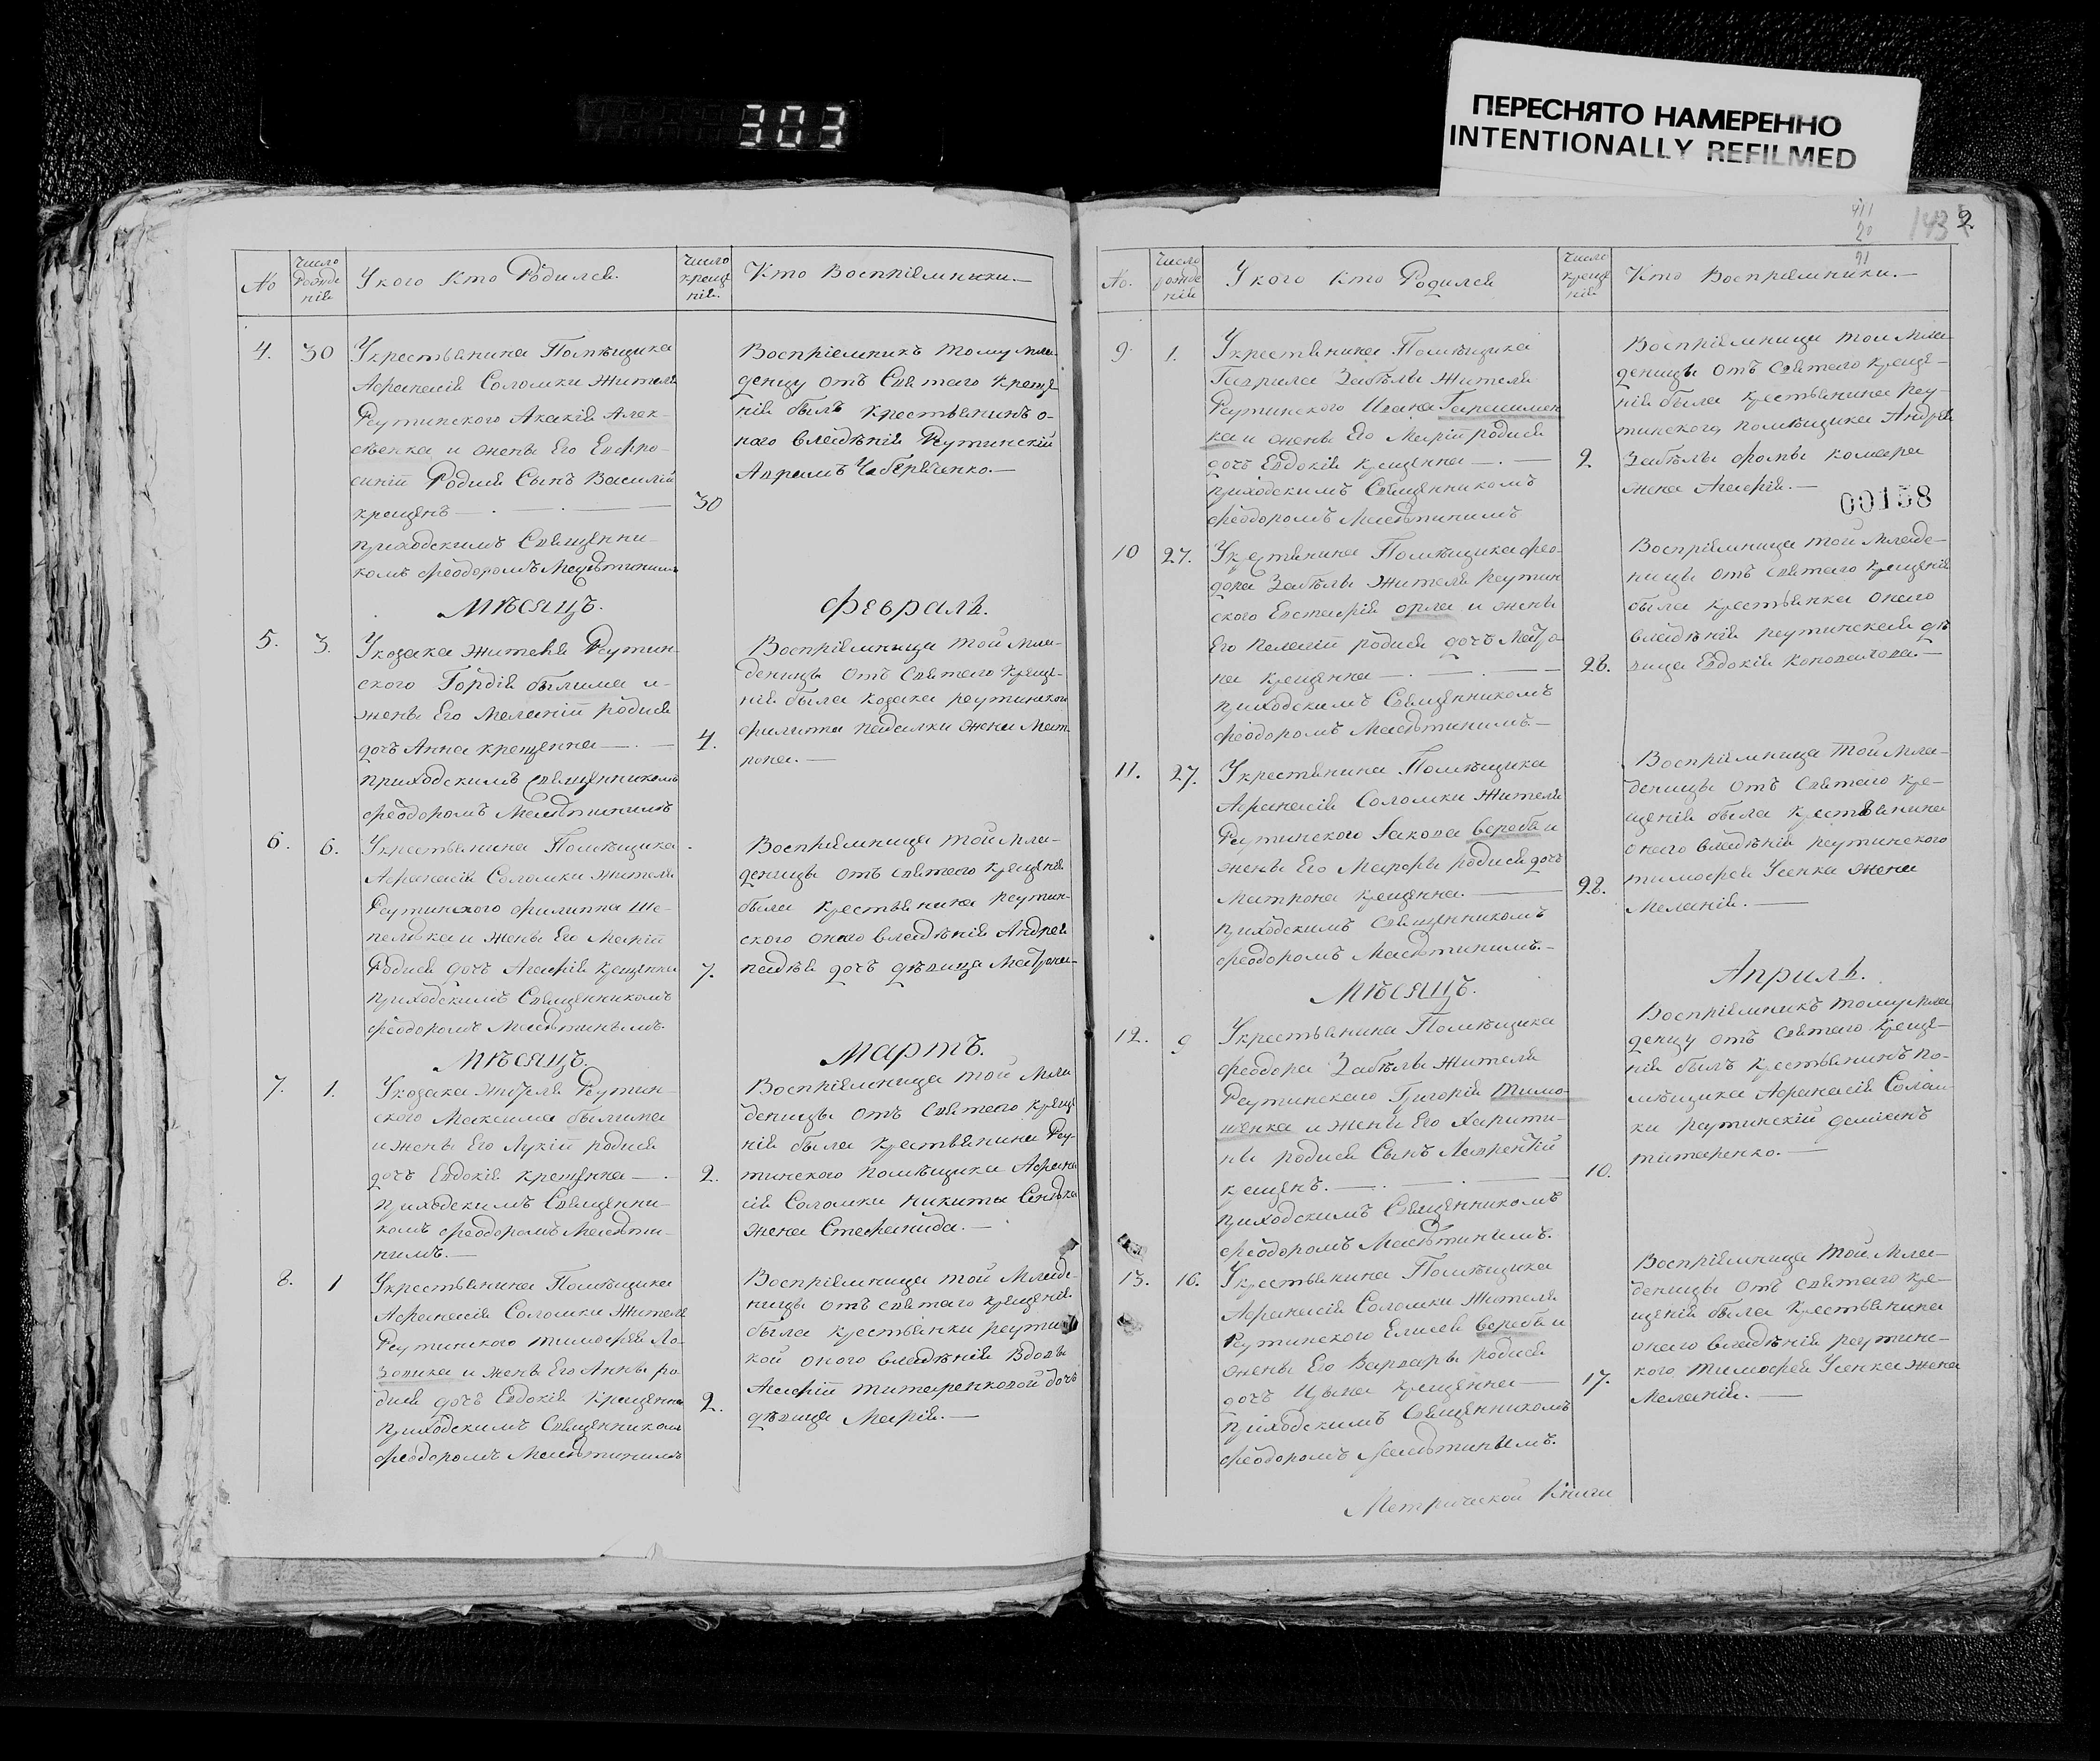 303
ПЕРЕСНЯТО НАМЕРЕННО
INTENTIONALLY REFILMED
No
Число Рожде нія
У кого Кто Родился.
Число Крещенія.
Кто Воспріемники.—
4.
30
У крестьянина Помѣщика
Афанасія Соломки Жителя
Реутинского Акакія Алек-
сѣенка и жены Его Евфро-
синіи Родися Сынъ Василій
крещенъ — . —
30
приходскимъ Священни-
комъ Феодоромъ
Воспріемникъ тому мла-
денцу отъ Святаго Креще-
нія былъ Крестьянинъ о-
наго владѣнія Реутинскій
Аврамъ
Мѣсяцъ.
Февраль.
5.
3.
У козака жителя Реутин-
ского Гордія былима и
жены Его Меланіи родися
дочь Анна крещенна — . —
4.
приходскимъ священникомъ
Феодоромъ
Воспріемница той мла-
деницы отъ Святаго Креще-
нія была козака реутинского
филиппа жена Мат-
рона. —
6.
6.
У крестьянина Помѣщика
Афанасія Соломки жителя
Реутинского филиппа Ше-
пелька и жены Его Маріи
Родися дочь Агафія крещенна
7.
приходскимъ Священникомъ
Феодоромъ
Воспріемница той мла-
деницы отъ святаго крещенія
была крестьянина реутин-
ского онаго владѣнія Андрея
дочь дѣвица Матрона—
Мѣсяцъ.
Мартъ.
7.
1.
У козака жителя Реутин-
ского Максима былима
и жены Его Лукіи родися
дочь Евдокія крещенна — .
2.
приходскимъ Священни-
комъ Феодоромъ
нимъ. —
Воспріемница той мла
деницы отъ Святаго креще
нія была крестьянина Реу-
тинского помѣщика Афана
сія Соломки никиты
жена Стефанида. —
8.
1
У крестьянина Помѣщика
Афанасія Соломки жителя
Реутинского тимофея Ло-
зовика и жены Его Анны ро-
дися дочь Евдокія крещенна
2.
приходскимъ Священникомъ
Феодоромъ
Воспріемница той младе-
ницы отъ святаго крещенія
была крестьянки реутин
кой оного владѣнія Вдовы
Агафіи титаренковой дочь
дѣвица Марія. —
411
20
91
143
2
No.
Число рожде нія
У кого Кто Родился
Число крещенія
Кто Воспріемники. —
9.
1.
У крестьянина Помѣщика
Гаврила Забѣлы жителя
Реутинского Ивана Герасимен
ка и жены Его Маріи родися
дочь Евдокія крещенна — . —
2
приходскимъ Священникомъ
Феодоромъ
Воспріемница той мла-
деницы отъ святаго креще-
нія была крестьянина реу-
тинского, помѣщика Андрея
Забѣлы фомы комара
жена Агафія. —
00158
10
27.
У крестьянина Помѣщика Фео-
дора Забѣлы жителя реутин
ского Евстафія орла и жены
Его Пелагіи родися дочь Матро-
на крещенна — . —
28.
приходскимъ Священникомъ
Феодоромъ
Воспріемница той младе-
ницы отъ святаго крещенія
была крестьянка онаго
владѣнія реутинская дѣ
вица Евдокія коновалова. —
11.
27.
У крестьянина Помѣщика
Афанасія Соломки жителя
Реутинского Іакова вереба и
жены Его Марфы родися дочь
Матрона крещенна. —
28.
приходскимъ священникомъ
Феодоромъ
Воспріемница той мла-
деницы отъ святаго кре-
щенія была крестьянина
онаго владѣнія реутинского
тимофея Усенка жена
Меланія. —
Мѣсяцъ.
Апрѣль.
12.
9
У крестьянина Помѣщика
Феодора Забѣлы жителя
Реутинского Григорія Тимо-
шенка и жены Его Харити-
ны родися Сынъ Лаврентій
крещенъ. — . —
10.
приходскимъ Священникомъ
Феодоромъ
Воспріемникъ тому мла
денцу отъ святаго креще-
нія былъ крестьянинъ по-
мѣщика Афанасія Солом-
ки реутинскій даміанъ
титаренко. —
13.
16.
У крестьянина Помѣщика
Афанасія Соломки жителя
Реутинского Елисея вереба и
жены Его Варвары родися
дочь крещенна —
17.
приходскимъ Священникомъ
Феодоромъ
Воспріемница той мла-
деницы отъ святаго кре-
щенія была крестьянина
онаго владѣнія реутинс-
кого тимофея Усенка жена
Меланія. —
Метрической книги